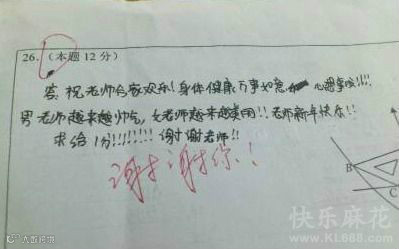 26.（本题12分）
答：祝老师合家欢乐！身体健康 万事如意 心想事成！！！！
男老师越来越帅气，女老师越来越美丽！！老师新年快乐！！
求给1分！！！！！！！！谢谢老师！！
谢谢你！！
B
C
快乐麻花
www.KL688.com